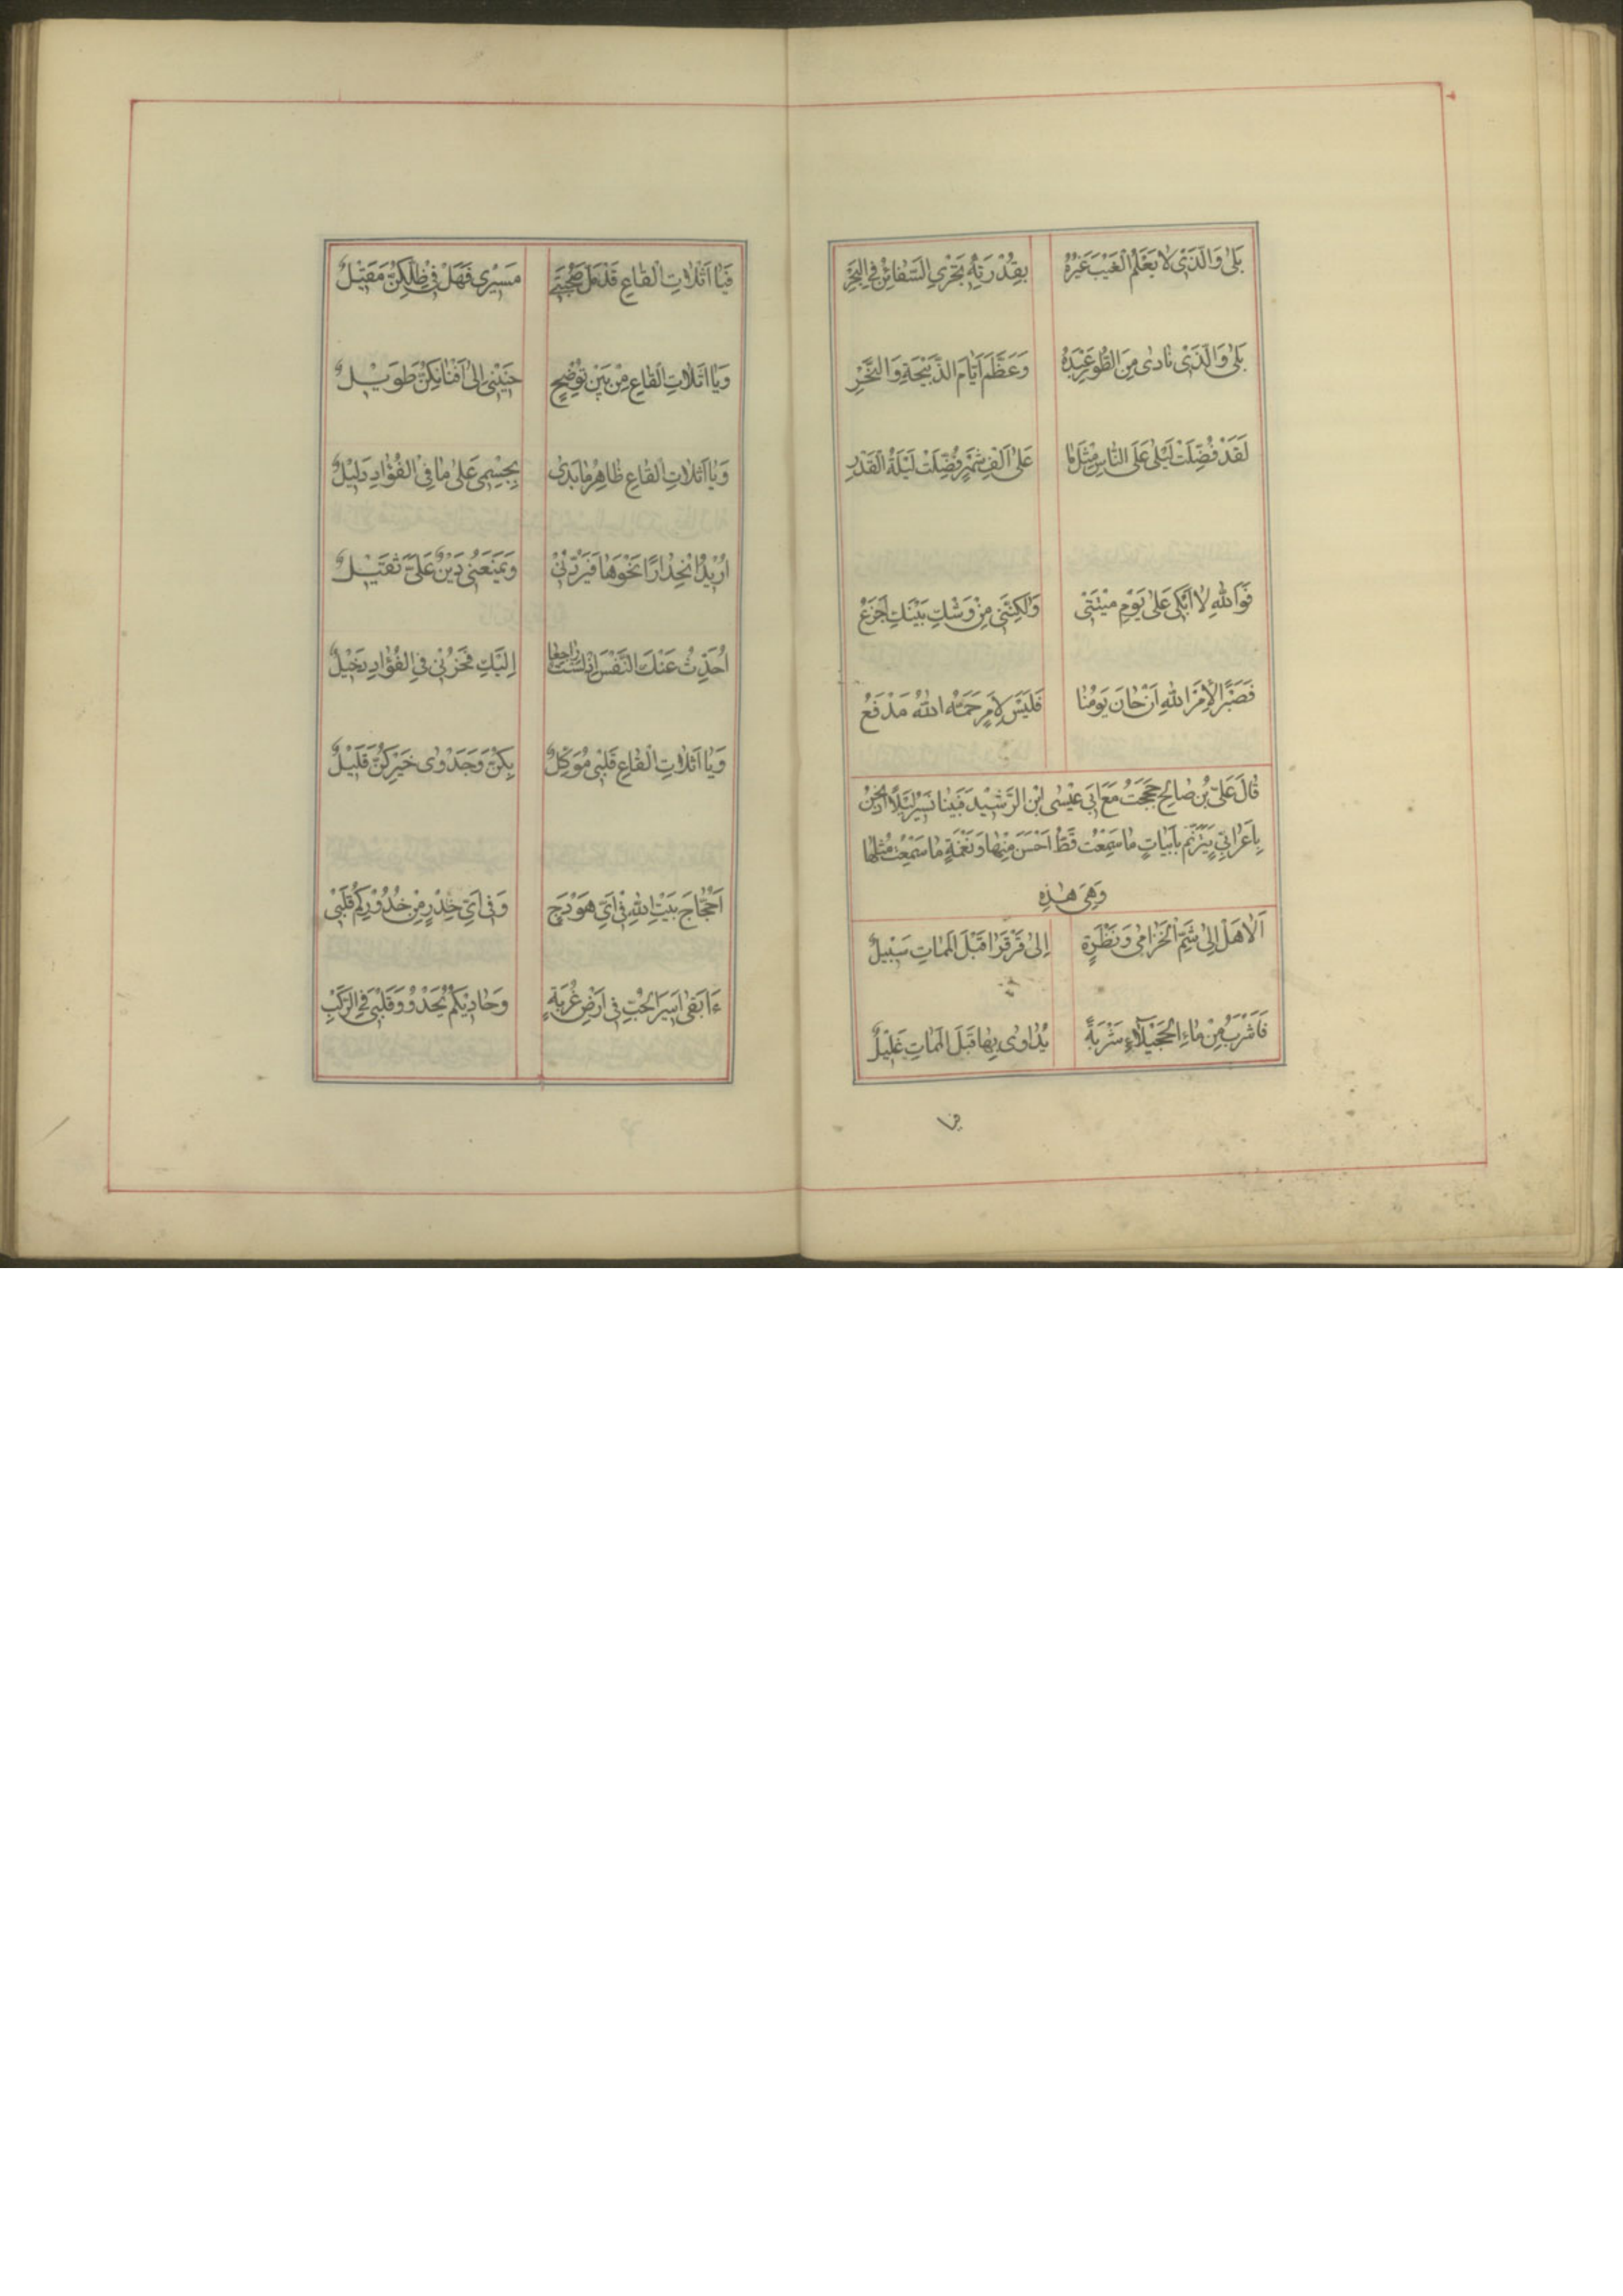 بَلىٰ وَالَّذَىْ لٰا يَعْلَمُ الْغَيْبَ غَيْرُهُ بِقُدْرَتِهِ تَجْرِي السَّفٰائِنُ فِي الْبَحْرِ
بَلىٰ وَالَّذَىْ نٰادىٰ مِنَ الطُّوْرِ عَبْدَهُ وَعَظَّمَ اَيّٰامَ الذَّبِيْحَةِ وَالنَّحْرِ
لَقَدْ فُضِّلَتْ لَيْلىٰ عَلَى النّٰاسِ مِثْلَ مٰا عَلىٰ اَلْفِ شَهْرٍ فُضِّلَتْ لَيْلَةُ الْقَدْرِ
فَوَاللهِ لٰا اَبْكى عَلىٰ يَوْمِ مَيْتَتىْ وَلٰكِنَّنى مِنْ وَشْكِ بَيْنِكِ اَجْزَعُ
فَصَبْرًا لِاَمْرِ اللهِ اَنْ حٰانَ يَوْمُنٰا فَلَيْسَ لِاَمْرٍ حَمَّهُ اللهُ مَدْفَعُ
قٰالَ عَلىُّ بْنُ صٰالِحٍ حَجَجْتُ مَعَ اَبى عيْسٰى ابْنِ الرَّشيْدِ فَبَيْنٰا نَسيْرُ لَيْلًا اِذْ نَحْنُ
بِاَعْرٰابِىٍّ يَتَرَنَّمُ بِاَبْيٰاتٍ مٰا سَمِعْتُ قَطُّ اَحْسَنَ مِنْهٰا وَنَغْمَةٍ مٰا سَمِعْتُ مِثْلَهٰا
وَهِىَ هٰذِهِ
اَلٰا هَلْ اِلىٰ شَمِّ الْخُزٰامىٰ وَنَظْرَةٍ اِلىٰ قَرْقَرٰا قَبْلَ الْمَمٰاتِ سَبيْلٌ
فَاَشْرَبُ مِنْ مٰاءِ الْحُجَيْلٰاءِ شَرْبَةً يُدٰاوىٰ بِهٰا قَبْلَ الْمَمٰاتِ عَليْلٌ
فيا
فَيٰا اَثَلٰاتِ الْقٰاعِ قَدْ مَلَّ صُحْبَتى مَسيْرى فَهَلْ فىْ ظِلِّكِنَّ مَقيْلٌ
وَيٰا اَثَلٰاتِ الْقٰاعِ مِنْ بَيْنِ تُوْضِحٍ حَنيْنى اِلىٰ اَفْنٰانِكِنَّ طَويْلٌ
وَيٰا اَثَلٰاتِ الْقٰاعِ ظٰاهِرُ مٰا بَدىٰ بِجِسْمى عَلىٰ مٰا فىْ الْفُؤٰادِ دَليْلٌ
اُريْدُ انْحِدٰارًا نَحْوَهٰا فَيَرُدُّنىْ وَيَمْنَعُنى دَيْنٌ عَلَىَّ ثَقيْلٌ
اُحَدِّثُ عَنْكِ النَّفْسَ اِنْ لَسْتُ رٰاجِعًا اِلَيْكِ فَحُزْنىْ فى الْفُؤٰادِ دَخيْلٌ
وَيٰا اَثَلٰاتِ الْقٰاعِ قَلْبى مُوَكَّلٌ بِكِنَّ وَجَدْوىٰ خَيْرِكِنَّ قَليْلٌ
اَحُجّٰاجَ بَيْتِ اللهِ فىْ اَىِّ هَوْدَجٍ وَفى اَىِّ خِدْرٍ مِنْ خُدُوْرِكُمُ قَلْبىْ
ءَاَبْقىٰ اَسيْرَ الْحُبِّ فى اَرْضِ غُرْبَةٍ وَحٰاديْكُمُ يَحْدُوْ وَقَلْبىَ فى الرَّكْبِ